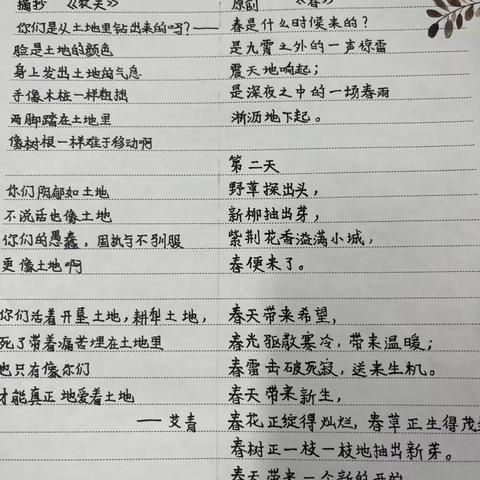 摘抄 《农夫》
你们是从土地里钻出来的吗？——
脸是土地的颜色
身上发出土地的气息
手像木桩一样粗拙
两脚踏在土地里
像树根一样难于移动啊
你们阴郁如土地
不说话也像土地
你们的愚蠢，固执与不驯服
更像土地啊
你们活着开垦土地，耕犁土地，
死了带着痛苦埋在土地里
也只有像你们
才能真正地爱着土地
—— 艾青
原创 《春》
春是什么时候来的？
是九霄之外的一声惊雷
震天地响起；
是深夜之中的一场春雨
淅沥地下起。
第二天
野草探出头，
新柳抽出芽，
紫荆花香溢满小城，
春便来了。
春天带来希望，
春光驱散寒冷，带来温暖；
春雷击破死寂，送来生机。
春天带来新生，
春花正绽得灿烂，春草正生得茂
春树正一枝一枝地抽出新芽。
春天带来一个新的开始